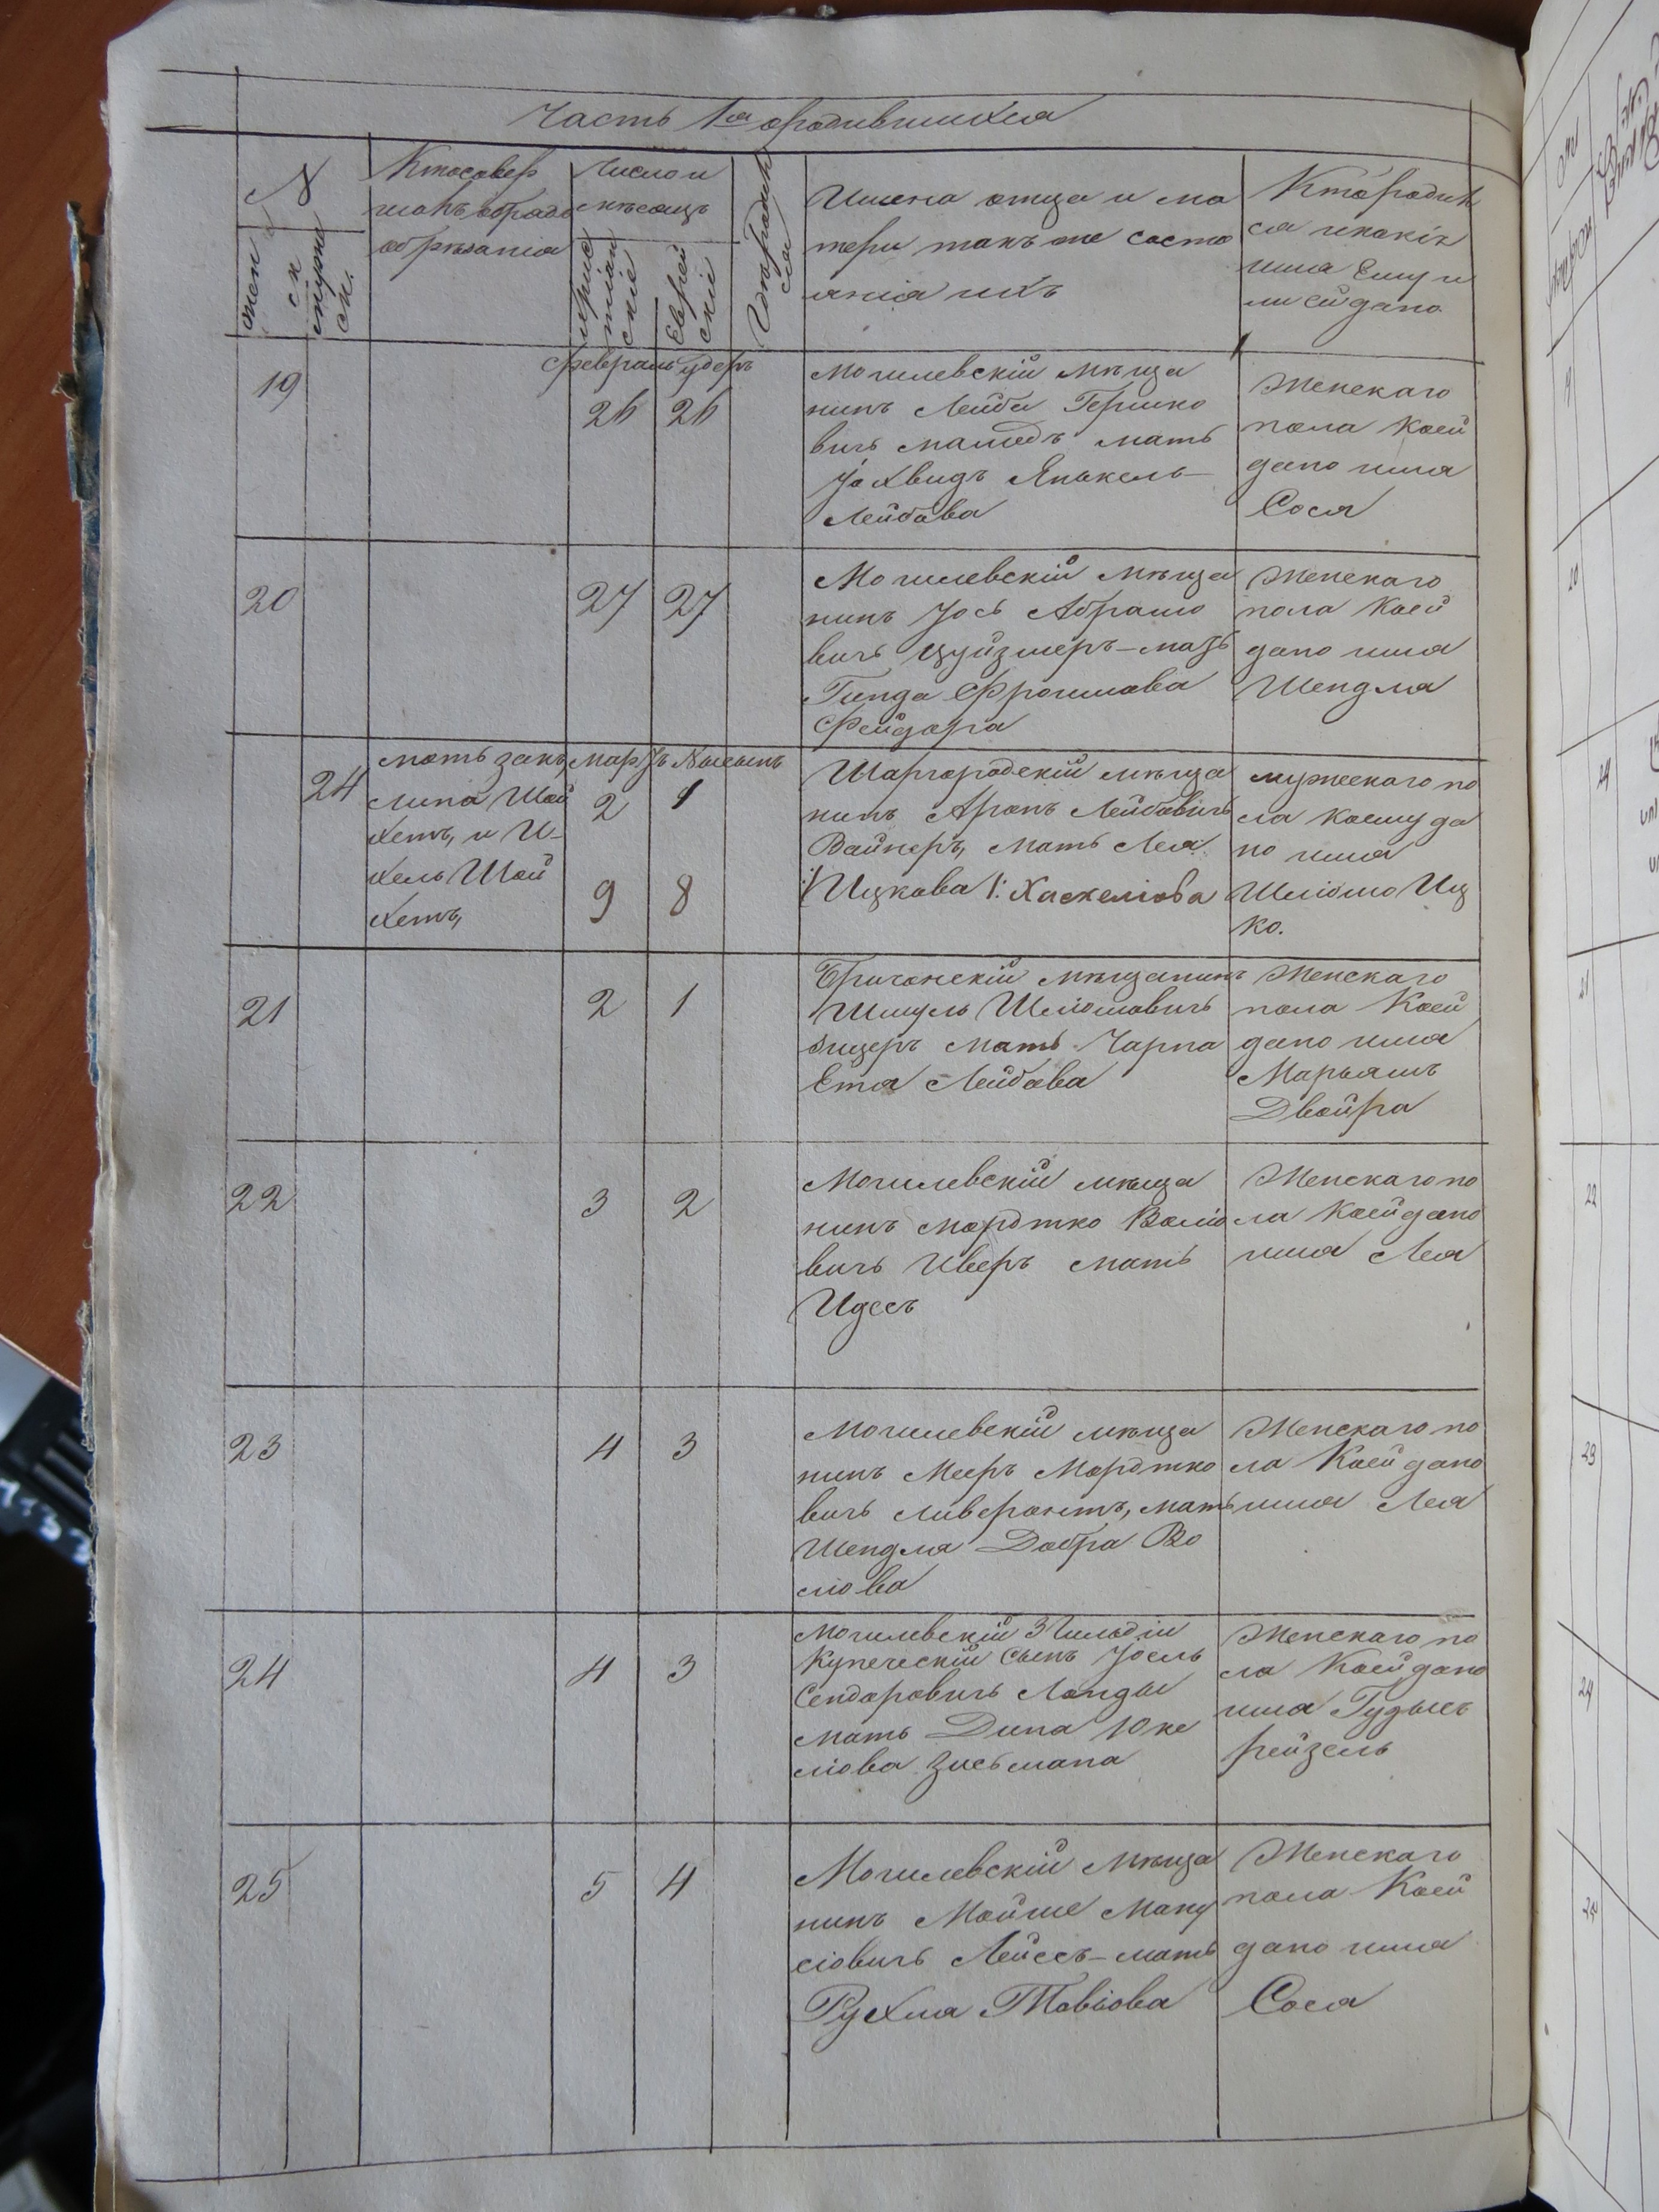 Часть 1ая о родившихся
№
женск
мужеск.
Кто совер
шалъ обрядъ
обрѣзанія
Число и
мѣсяцъ
христіанскіе
Еврейскіе
Гдѣ родился
Имена отца и ма
тери такъ же состо
янія ихъ
Кто родил
ся и какія
имя Ему и
ли ей дано
19
Февраль Удеръ
26 26
Могилевскій мѣща
нинъ Лейба Гершко
вичъ мать
Іохвидъ Янькель
Лейбова
Женскаго
пола Коей
дано имя
Сося
20
27 27
Могилевскій мѣща
нинъ Іось Абрамо
вичъ Цуйзмеръ - мать
Гинда Фроимова
Фейдора
Женскаго
пола Коей
дано имя
Шендля
24
липа Шой
хетъ, и И-
хель Шой
хетъ,
мартъ
2 1
9 8
Шаргородскій мѣща
нинъ Аронъ Лейбовичъ
Вайнеръ, мать Лея
Ицкова /: Хаскелiова
мужескаго по
ла коему да
но имя
Шліомо Иц
ко.
21
2 1
Бричанскій мѣщанинъ
Шмуль Шліомовичъ
мать Чарна
Ета Лейбова
Женскаго
пола Коей
дано имя
Марьямъ
Двойра
22
3 2
Могилевскій мѣща
нинъ Мордтко Воліо
вичъ Иверъ мать
Идесъ
Женскаго по
ла Коей дано
имя Лея
23
4 3
Могилевскій мѣща
нинъ Мееръ Мордтко
вичъ Ливерантъ, мать
Шендля Добра Во
ліова
Женскаго по
ла Коей дано
имя Лея
24
4 3
Могилевскій 3 Гильдіи
Купеческій Сынъ Іосль
Сендоровичъ Ланды
мать Дина Юке
ліова Зисьмана
Женскаго по
ла Коей дано
имя Гудысъ
рейзель
25
5 4
Могилевскій Мѣща
нинъ МойшеМану
сіовичъ Лейсъ - мать
Рухля Товіова
Женскаго
пола Коей
дано имя
Сося
19
20
24
21
22
23
24
25